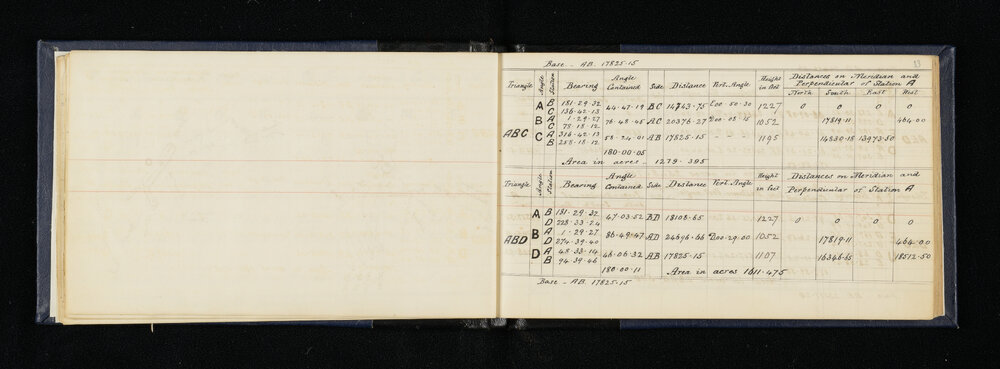 13
Base - AB. 17825·15
Triangle Angle Station Bearing Angle Contained Side Distance Vert. Angle Height in feet Distances on Meridian and Perpendicular of Station A
North South East West
ABC A B 181·29·32 44·47·19 BC 14743·75 E00·50·30 1227 0 0 0 0
C 136·42·13
B A 1·29·27 76·48·45 AC 20376·27 D00·08·15 1052 17819·11 464·00
C 78·18·12
C A 316·42·13 58·24·01 AB 17825·15 1195 14830·18 13973·50
B 258·18·12
180·00·05
Area in acres 1279·395
Triangle Angle Station Bearing Angle Contained Side Distance Vert. Angle Height in feet Distances on Meridian and Perpendicular of Station A
ABD A B 181·29·32 47·03·52 BD 18108·65 1227 0 0 0 0
D 228·33·24
B A 1·29·27 86·49·47 AD 24696·66 D00·29·00 1052 17819·11 464·00
D 274·39·40
D A 48·33·14 46·06·32 AB 17825·15 1107 16346·65 18512·50
B 94·39·46
180·00·11 Area in acres 1611·475
Base - AB. 17825·15